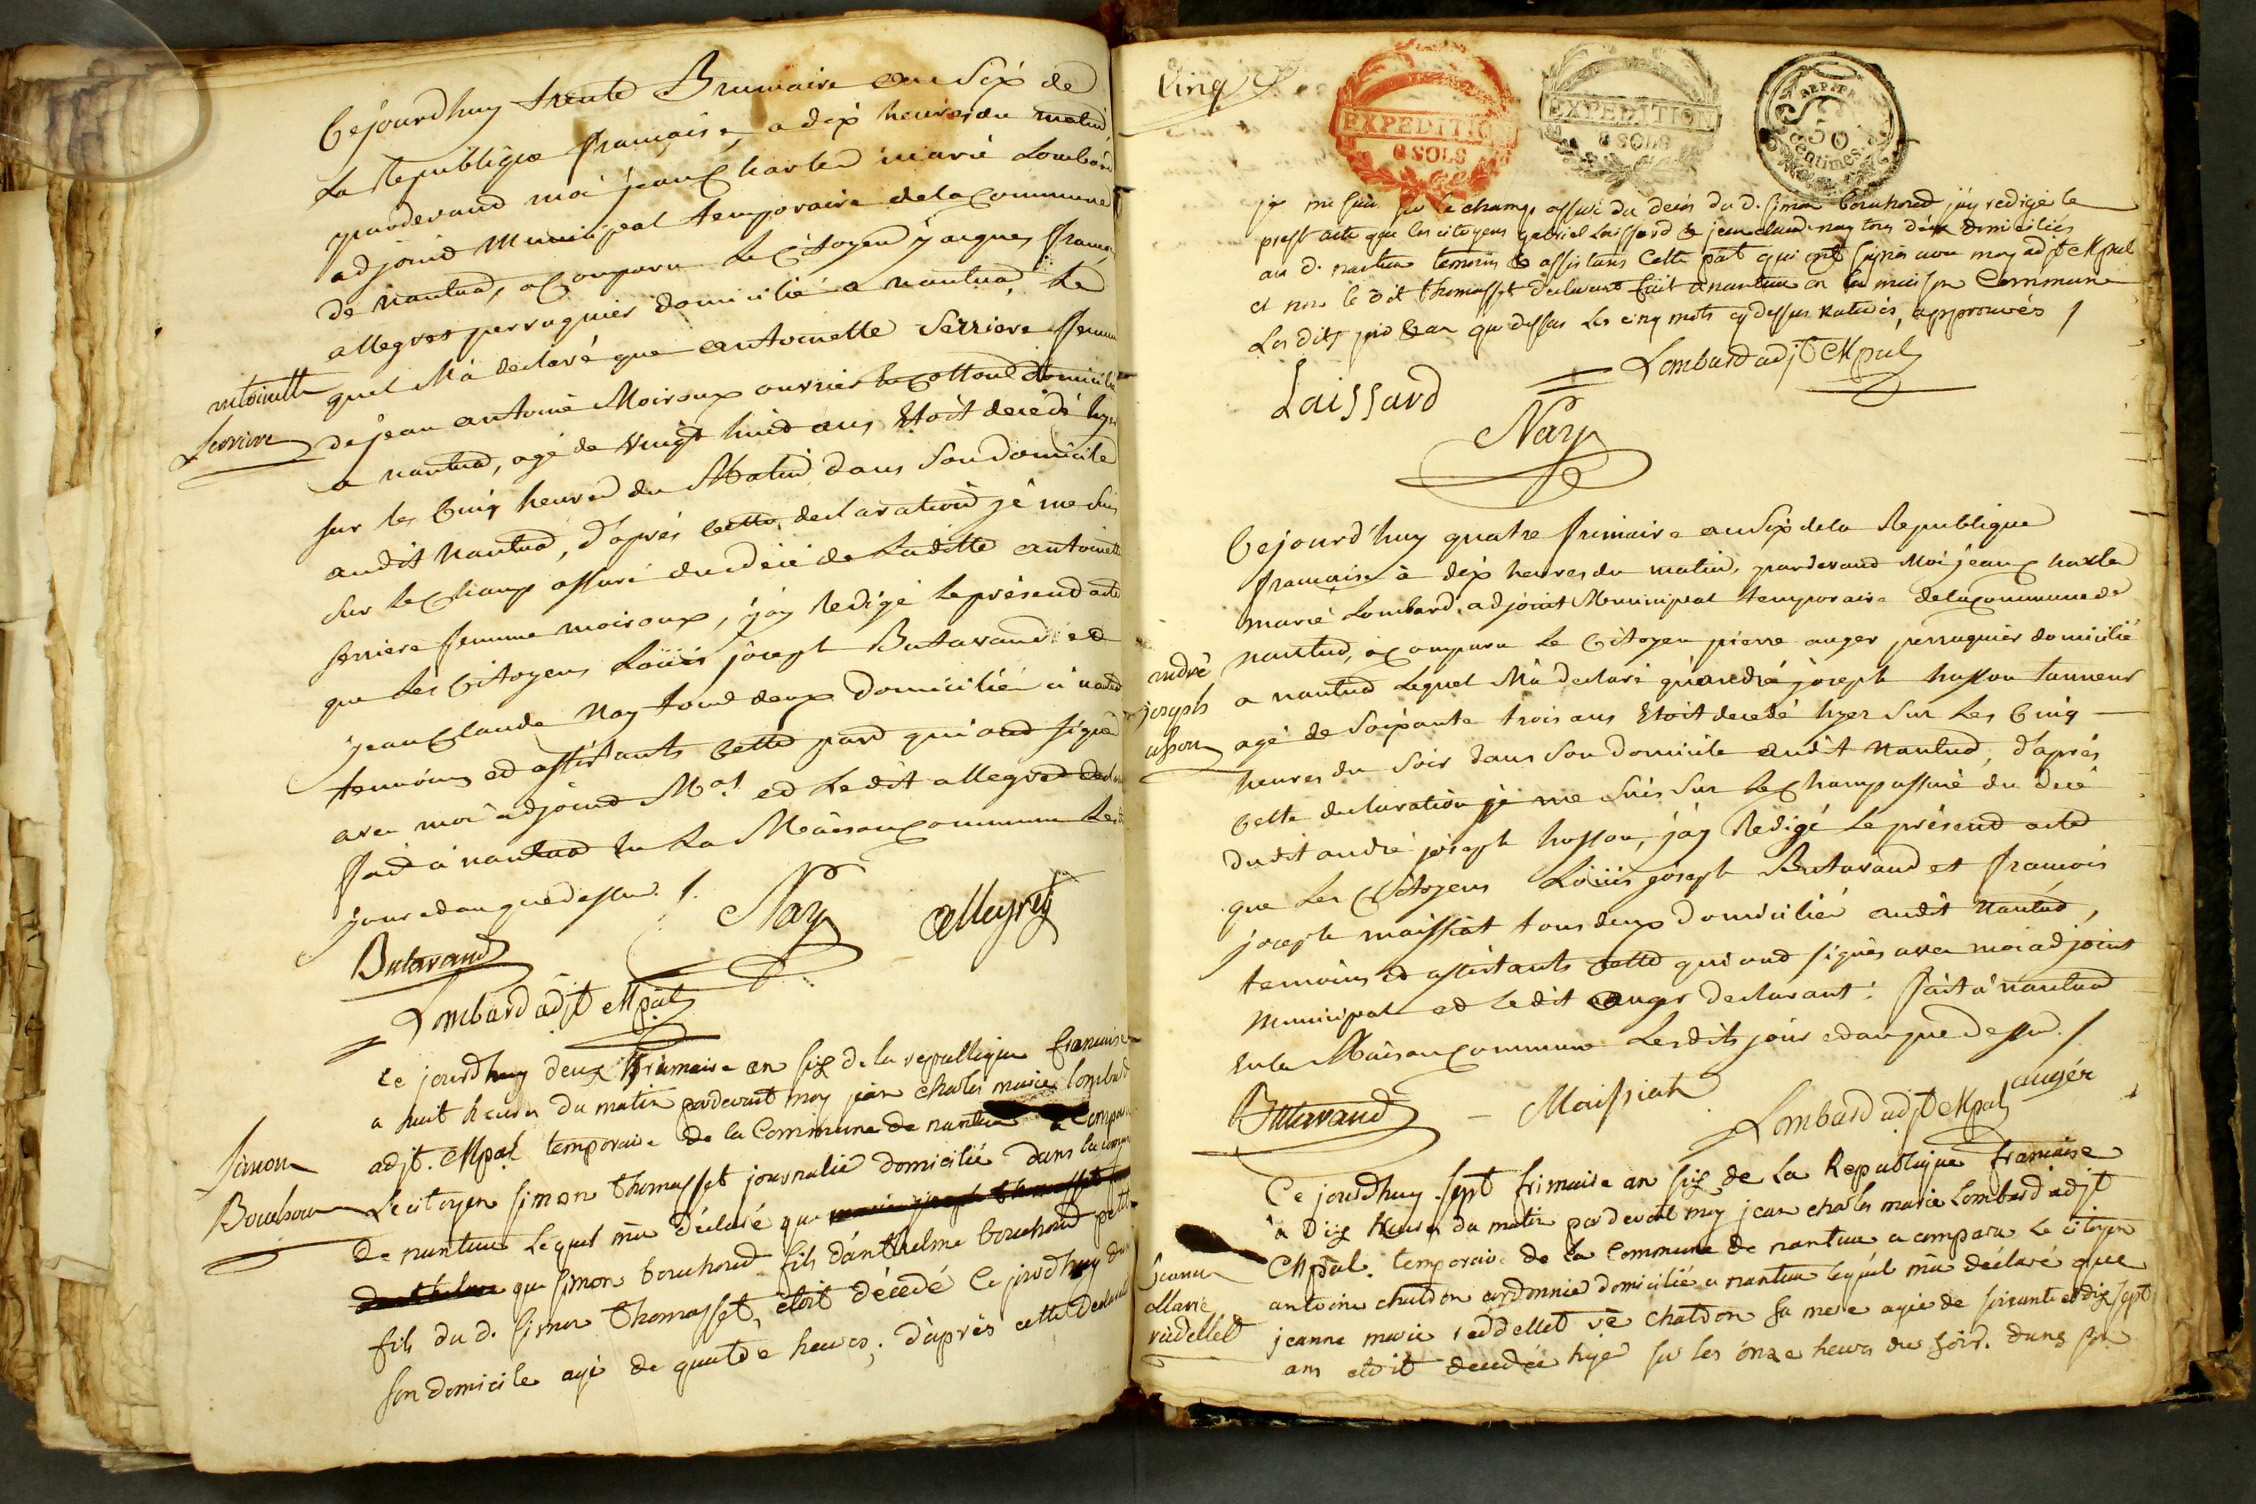 Cejourdhuy trente Brumaire an Six de
La Republique francaise, a dix heures du matin
pardevand moi jean Charles marie Lombard
adjoind Municipal temporaire de la Commune
de nantua, a Comparu le Citoyen jacques francois
allegret perruquier domicilié a nantua, Le
quel M'a declaré que antoinette Serriere femme
ntoinette
Serriere
de jean antoine Moiroux ouvrier en Cotton domicilié
a nantua, agé de vingt huid ans Etoit decedé hyer
sur les Cinq heures du Matin dans Son domicile
audit Nantua, d'après cette declaration je me suis
sur le Champ assuré du décè de Laditte antoinette
serriere femme moiroux, j'ay Redigé le présend acte
que les Citoyens Loüis joseph Butavand ed
jean Claude Nay tous deux Domicilié à nantua
temoins ed assistants cette pard qui ond signé
avec moi adjoind M.al ed Ledit allegret declarant
faid à nantua en La Maison Commune Lesdit
jour ed an que dessus /.
Nay
allegret
Butavand
Lombard adjt Mpal
ce jourdhuy deux frimaire an six de la republique francaise
a huit heures du matin pardevant moy jean charles marie lombard
adjt. Mpal temporaire de la Commune de nantua a Comparu
Simon
Bouchon
Le citoyen simon thomasset journalié domicilié dans la commune
de nantua Lequel ma déclaré que
que simon bouchond fils danthelme bouchond petit
fils du d. simon thomasset, étoit décedé ce jourdhuy dans
son domicile agé de quatre heures; d'après cette declaration
Cinq
EXPEDITION
8 SOLS
EXPEDITION
8 SOLS
50
centimes
je me suis sur le champ assuré du deces du d. simon bouchond j'ay redigé le
presft acte que les citoyens gabriel Laissard & jean claude nay tous deux domiciliés
au d. nantua temoins & assistans cette part qui ont signés avec moy adjt Mpal
et non le dit thomasset declarant fait a nantua en la maison Commune
Les dits jour & an que dessus Les cinq mots cy dessus raturés, approuvés /
Lombard adjt Mpal
Laissard
Nay
Cejourd'huy quatre frimaire an Six de la Republique
francaise à dix heures du matin, pardevand Moi jean Charles
marie Lombard, adjoint Municipal temporaire de la Commune de
nantua, a Comparu Le Citoyen pierre auger perruquier domicilié
ndré
joseph
usson
a nantua Lequel M'à declaré qu'andré joseph husson tanneur
agé de Soixante trois ans Etoit decedé hyer Sur Les Cinq
heures du Soir dans Son domicile audit Nantua, d'après
Cette declaration je me Suis Sur le Champ assuré du decè
dudit andré joseph husson, j'ay Redigé Le présend acte
que Les Citoyens Loüis joseph Butavand et francois
joseph maissiat tous deux Domicilié audit Nantua,
temoins ed assistants cette qui ond signés avec moi adjoint
Municipal ed ledit auger declarant. fait à nantua
En la Maison Commune Lesdits jour ed an que dessus. /
Butavand
Maissiat
auger
Lombard adjt Mpal
Ce jourdhuy sept frimaire an six de La Republique francaise
à dix heures du matin pardevant moy jean charles marie Lombard adjt
Mpal. temporaire de la Commune de nantua a comparu le citoyen
Jeanne
Marie
riddellet
antoine chatdon cordonnie domicilié a nantua lequel ma déclaré que
jeanne marie reddellet ve chatdon sa mere agée de soixante et dix sept
ans etoit decedée hyer sur les onze heures du soir. dans son